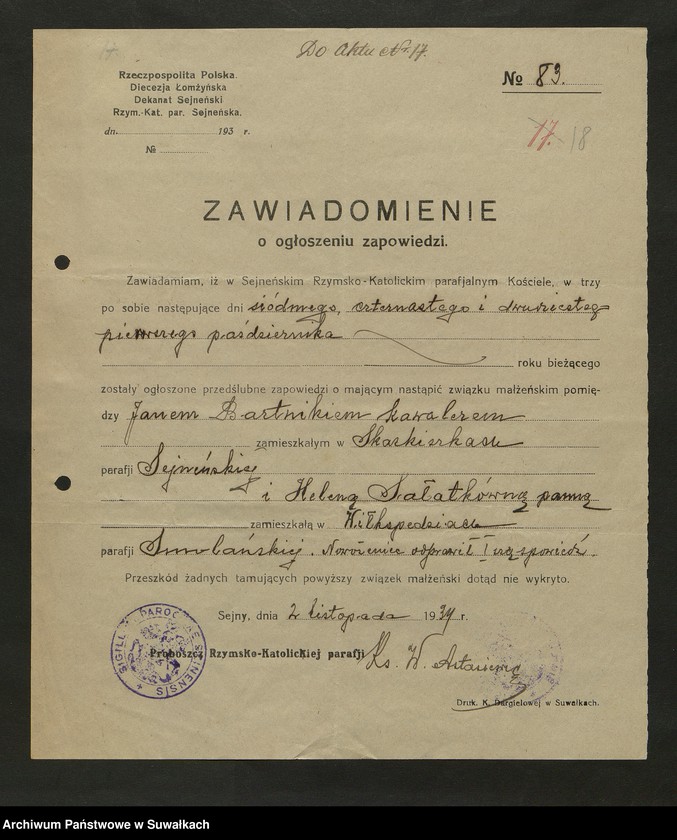 Do Aktu Nr. 17.
Rzeczpospolita Polska.
Diecezja Łomżyńska
Dekanat Sejneński
Rzym.-Kat. par. Sejneńska.
dn. 193 r.
№
№ 89.
17. 18
ZAWIADOMIENIE
o ogłoszeniu zapowiedzi.
Zawiadamiam, iż w Sejneńskim Rzymsko-Katolickim parafjalnym Kościele, w trzy
po sobie następujące dni siódmego, czternastego i dwudziestego
pierwszego października
roku bieżącego
zostały ogłoszone przedślubne zapowiedzi o mającym nastąpić związku małżeńskim pomię-
dzy Janem Bartnikiem kawalerem
zamieszkałym w
parafji Sejneńskiej
i Heleną Sałatkówną panną
zamieszkałą w
parafji Smolańskiej. Narzeczeniec odprawił I-szą spowiedź.
Przeszkód żadnych tamujących powyższy związek małżeński dotąd nie wykryto.
Sejny, dnia 2 listopada 1934 r.
SIGILLUM PAROCHIAE SEJNENSIS
Proboszcz Rzymsko-Katolickiej parafji Ks. W.
Druk. K. Dargielowej w Suwałkach.
Archiwum Państwowe w Suwałkach